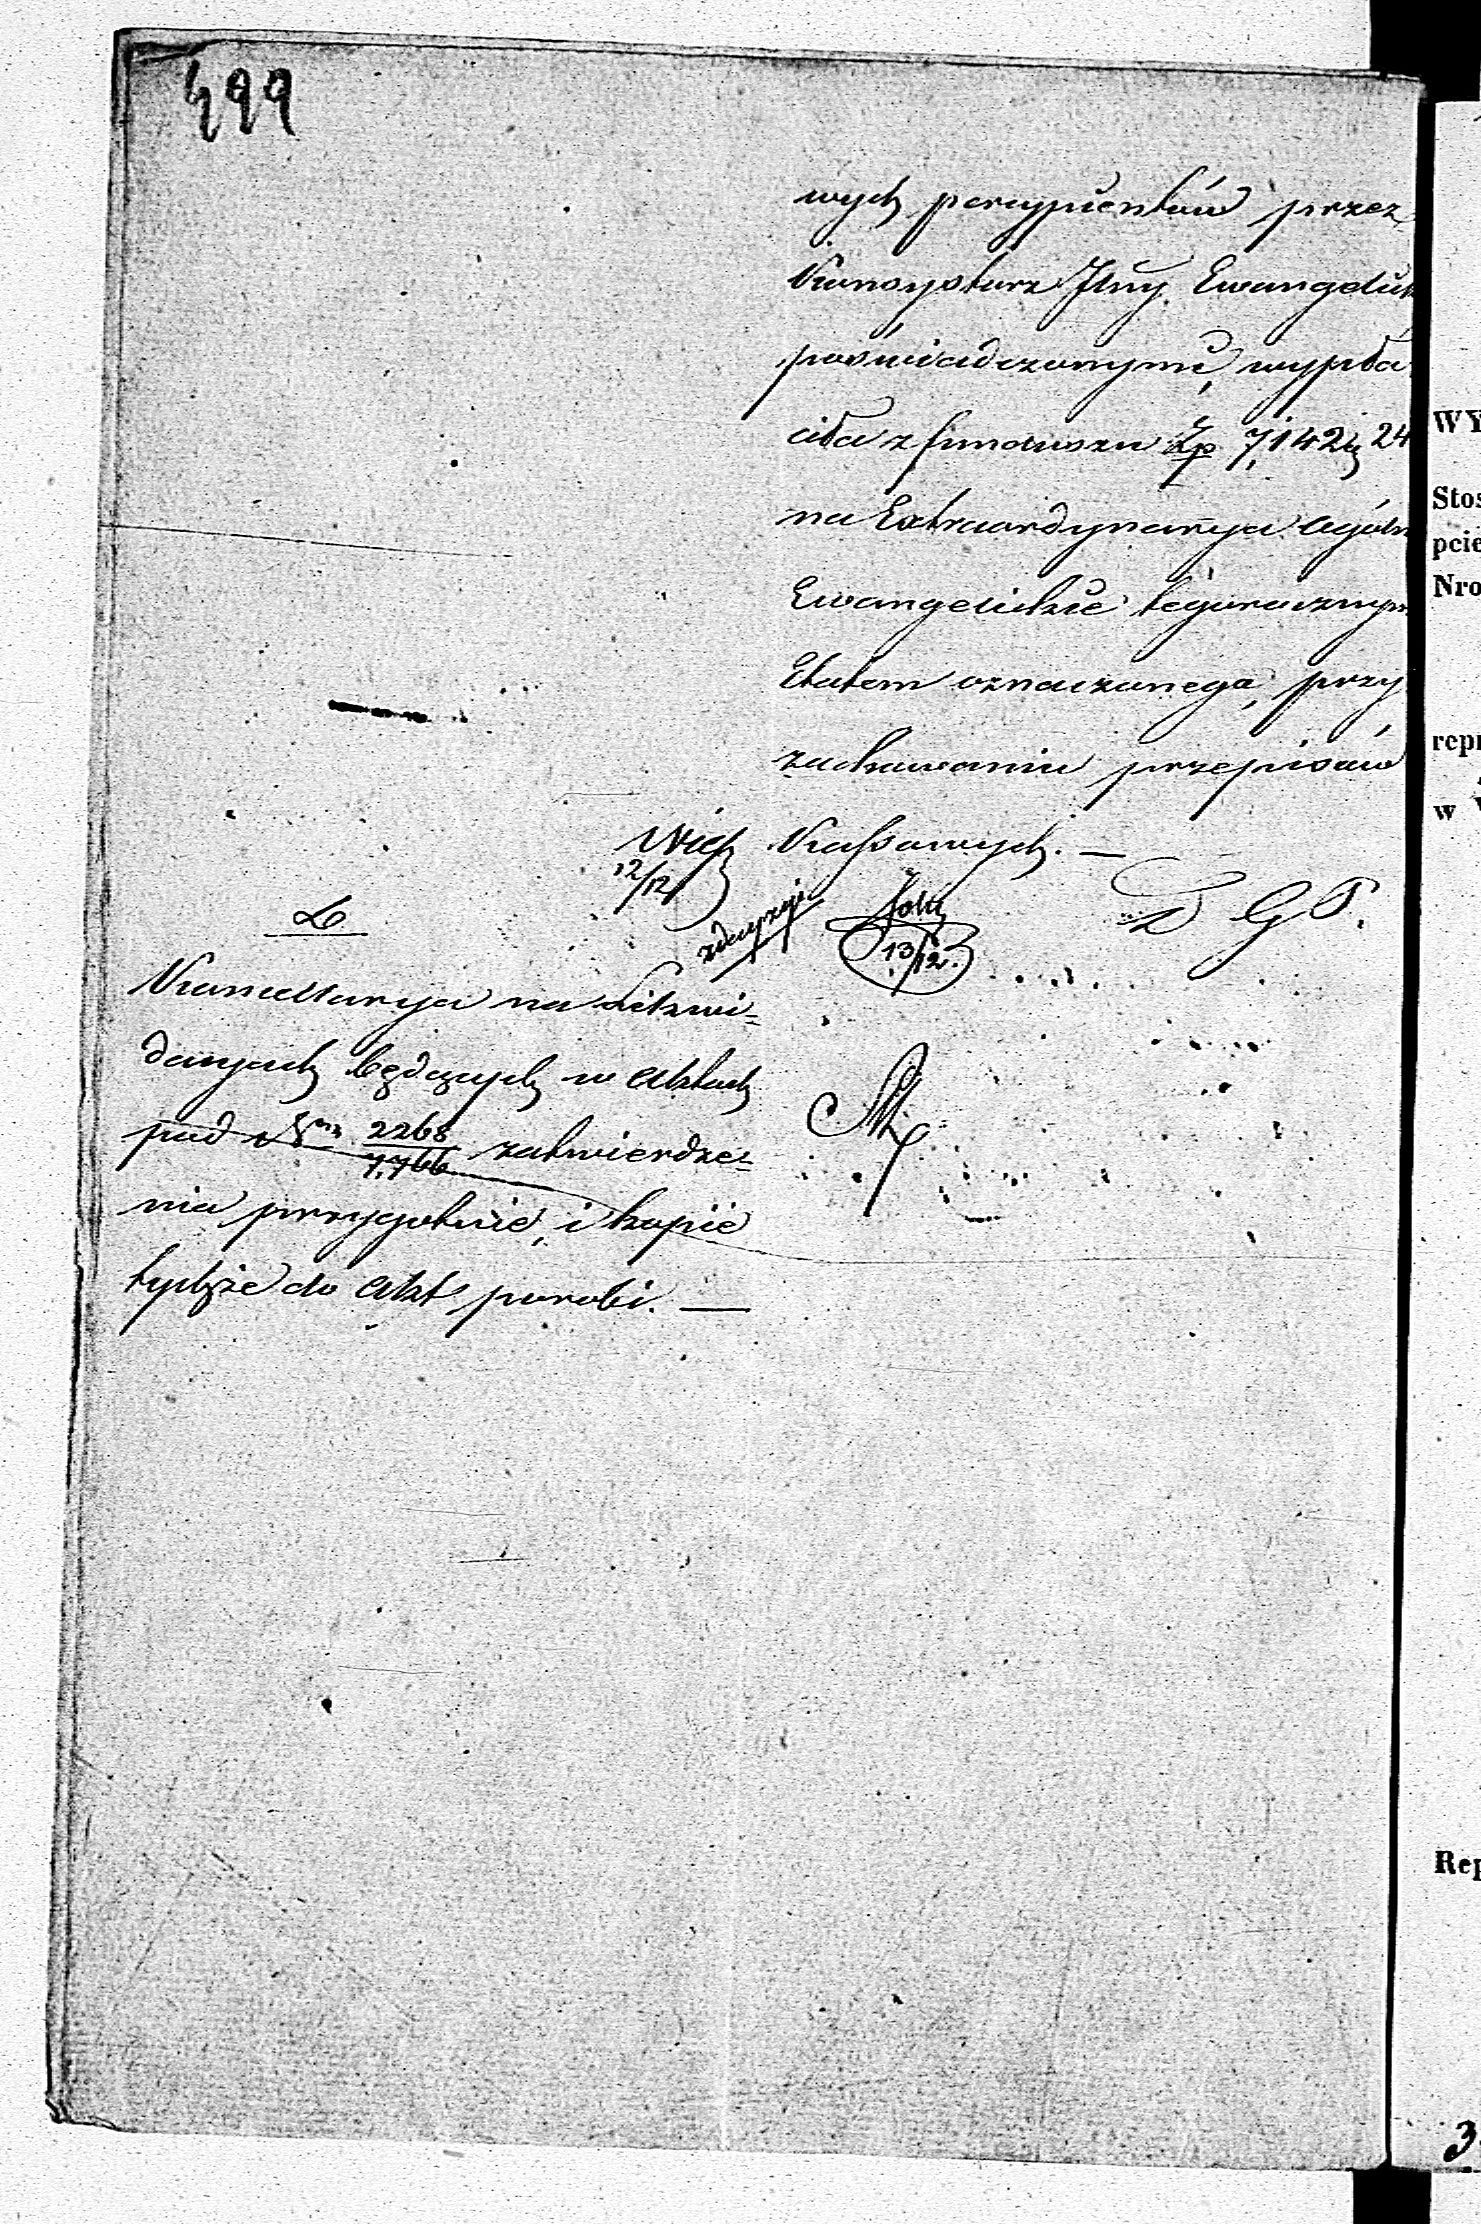 499
wych percypientów przez
Konsystorz Jlny Ewangelick
poświadczonymi, wypła-
ciła z funduszu Zp 7,142 g 24
na Extraordynarya Ogóln
Ewangelickie tegorocznym
Etatem oznaczonego, przy
zachowaniu przepisów
Kassowych. —
12/12
13/12.
D G P.
Kancellarya na Likwi-
dacyach będących w Aktach
pod Nrem 2268/7,766 zatwierdze-
nia przygotuie, i kopie
tychże do Akt porobi. —
WY
Stos
pcie
Nro
repr
w
Rep
3